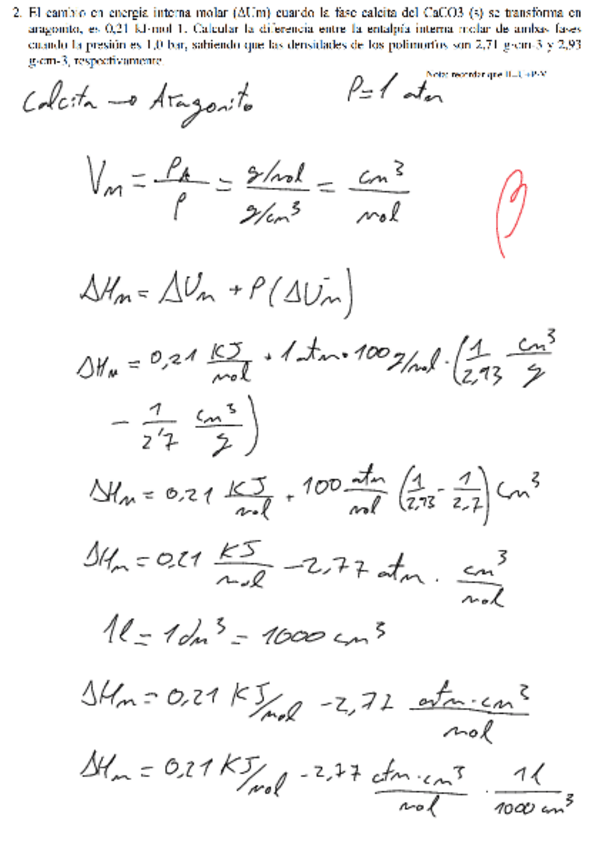 2. El cambio en energía interna molar (ΔUm) cuando la fase calcita del CaCO3 (s) se transforma en
aragonito, es 0,21 kJ·mol-1. Calcular la diferencia entre la entalpía interna molar de ambas fases
cuando la presión es 1,0 bar, sabiendo que las densidades de los polimorfos son 2,71 g·cm-3 y 2,93
g·cm-3, respectivamente.
Nota: recordar que H=U+P·V
Calcita → Aragonito P=1 atm
Vm = PA/ρ = (g/mol)/(g/cm³) = cm³/mol
ΔHm = ΔUm + P(ΔVm)
ΔHm = 0,21 KJ/mol + 1 atm · 100 g/mol · (1/2,93 cm³/g
- 1/2'7 cm³/g)
ΔHm = 0,21 KJ/mol + 100 atm/mol (1/2,93 - 1/2,7) cm³
ΔHm = 0,21 KJ/mol - 2,77 atm · cm³/mol
1l = 1dm³ = 1000 cm³
ΔHm = 0,21 KJ/mol - 2,72 atm·cm³/mol
ΔHm = 0,21 KJ/mol - 2,77 atm·cm³/mol · 1l/1000 cm³